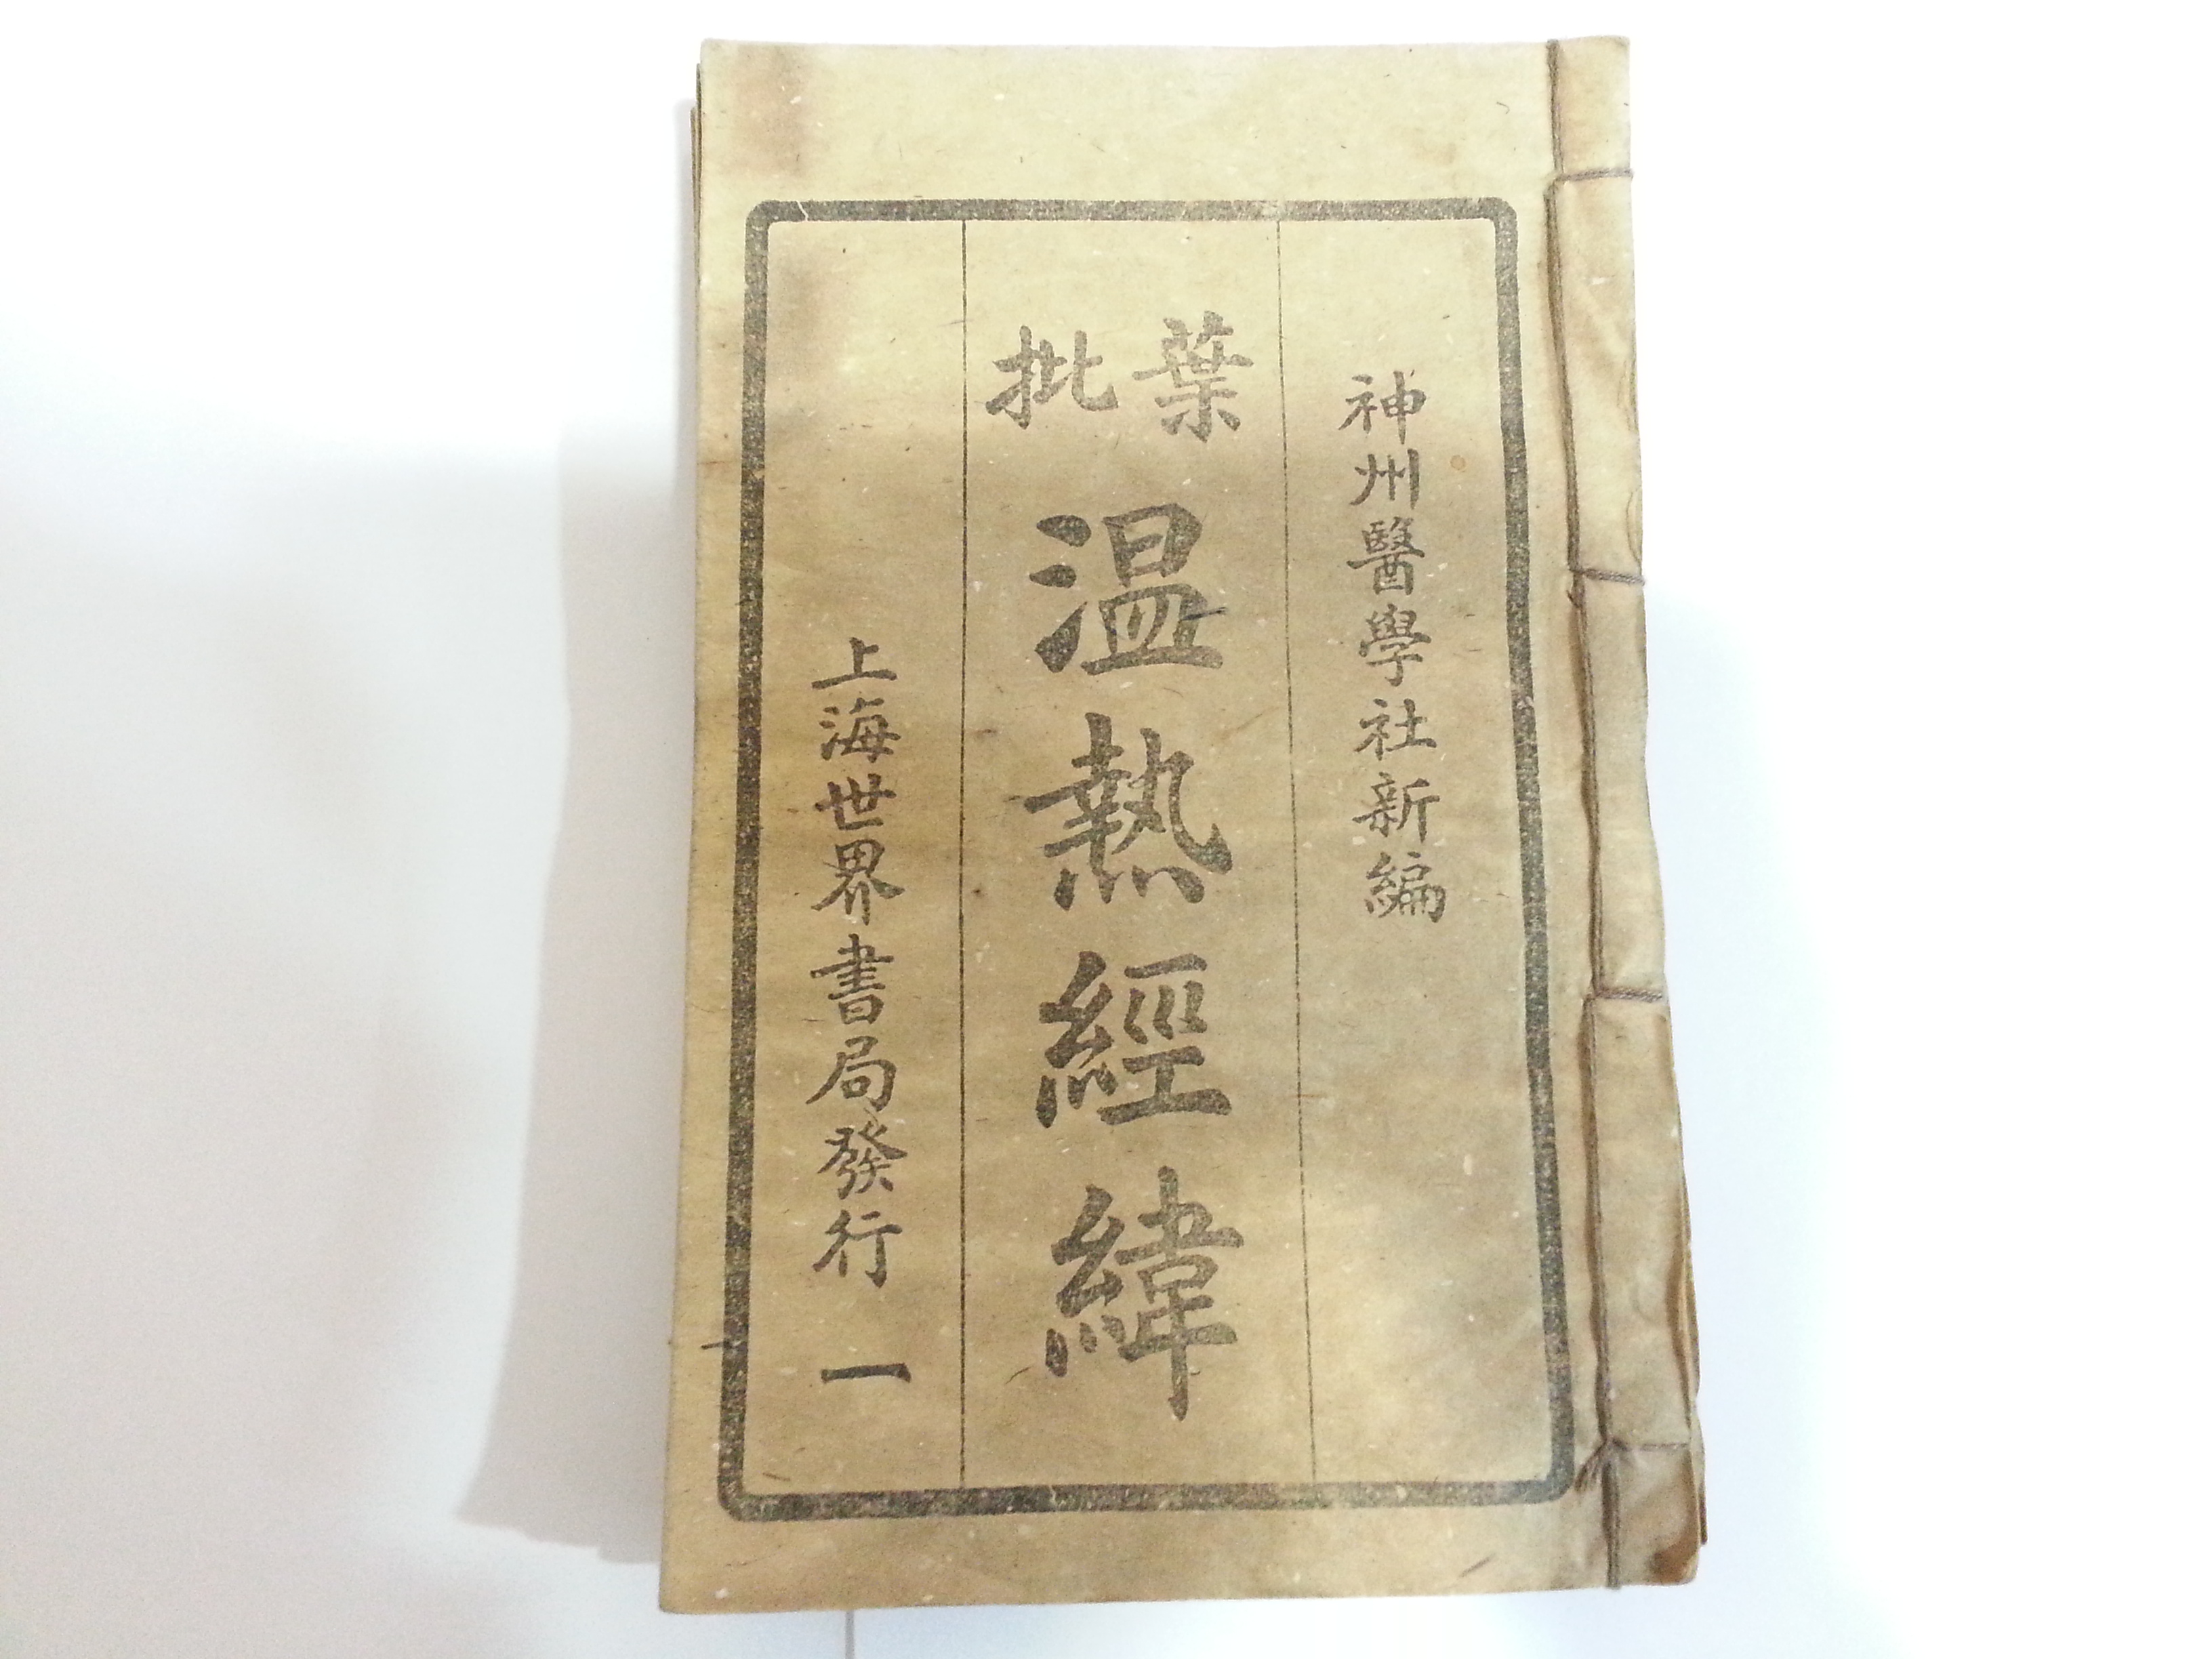 神州醫學社新編
葉批
温熱經緯
上海世界書局發行 一